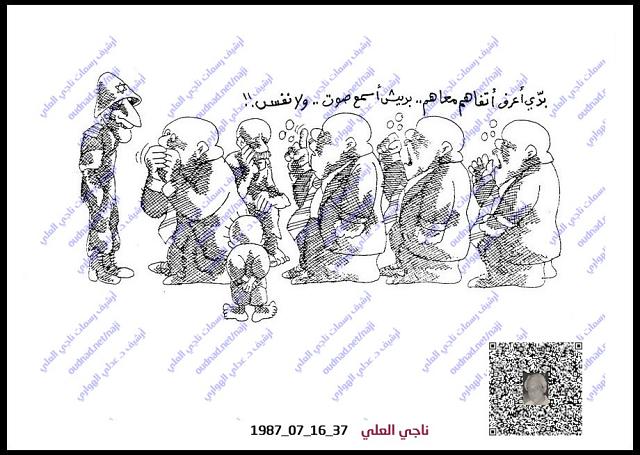 بدّي أعرف أتفاهم معاهم.. بديش أسمع صوت.. ولا نفس.!!
أرشيف رسمات ناجي العلي
oudnad.net/naji
أرشيف د. عدلي الهواري
1987_07_16_37 ناجي العلي